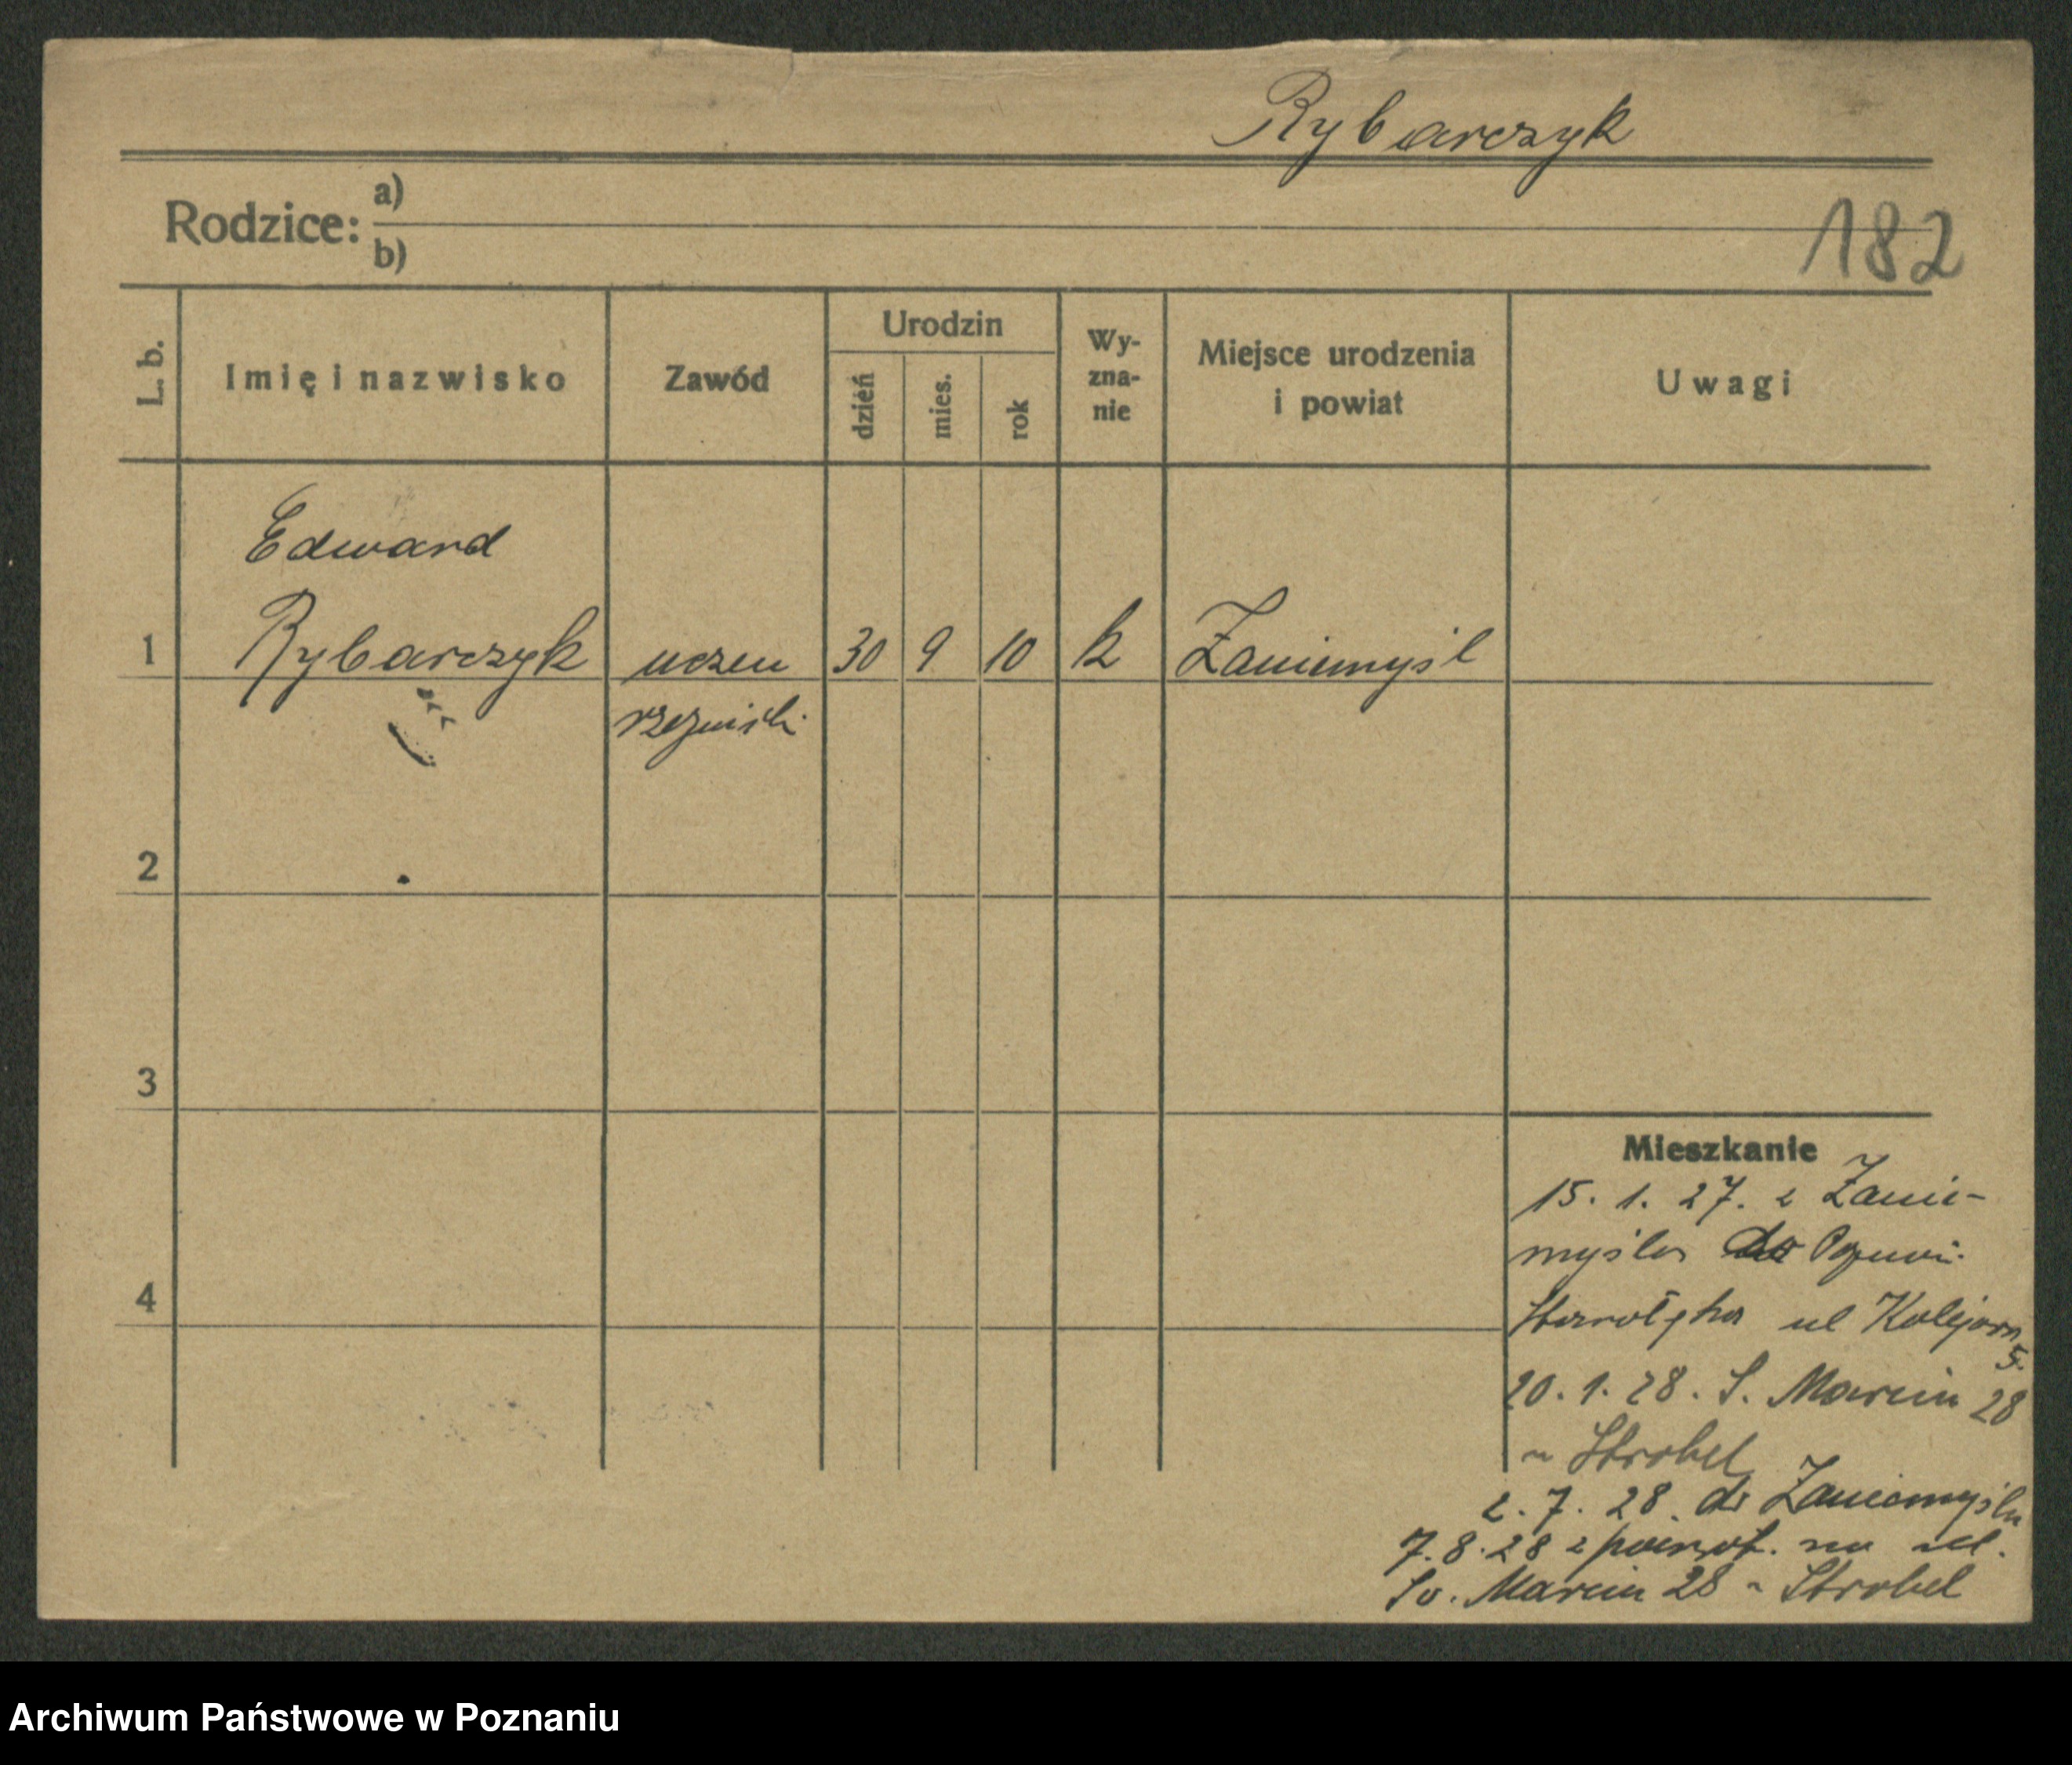 Rybarczyk
Rodzice: a)
b)
182
L. b.
Imię i nazwisko
Zawód
Urodzin
dzień
mies.
rok
Wy-
zna-
nie
Miejsce urodzenia
i powiat
Uwagi
Edward
1 Rybarczyk uczeń 30 9 10 k Zaniemyśl
rzeźnicki
2
3
4
Mieszkanie
15. 1. 27. z Zanie-
myśla do Poznań
Starołęka ul Kolejowa
5.
20. 1. 28. S. Marcin 28
Strobel
2. 7. 28. do Zaniemyśla
7. 8. 28 z powrot. na ul.
Sw. Marcin 28 Strobel
Archiwum Państwowe w Poznaniu